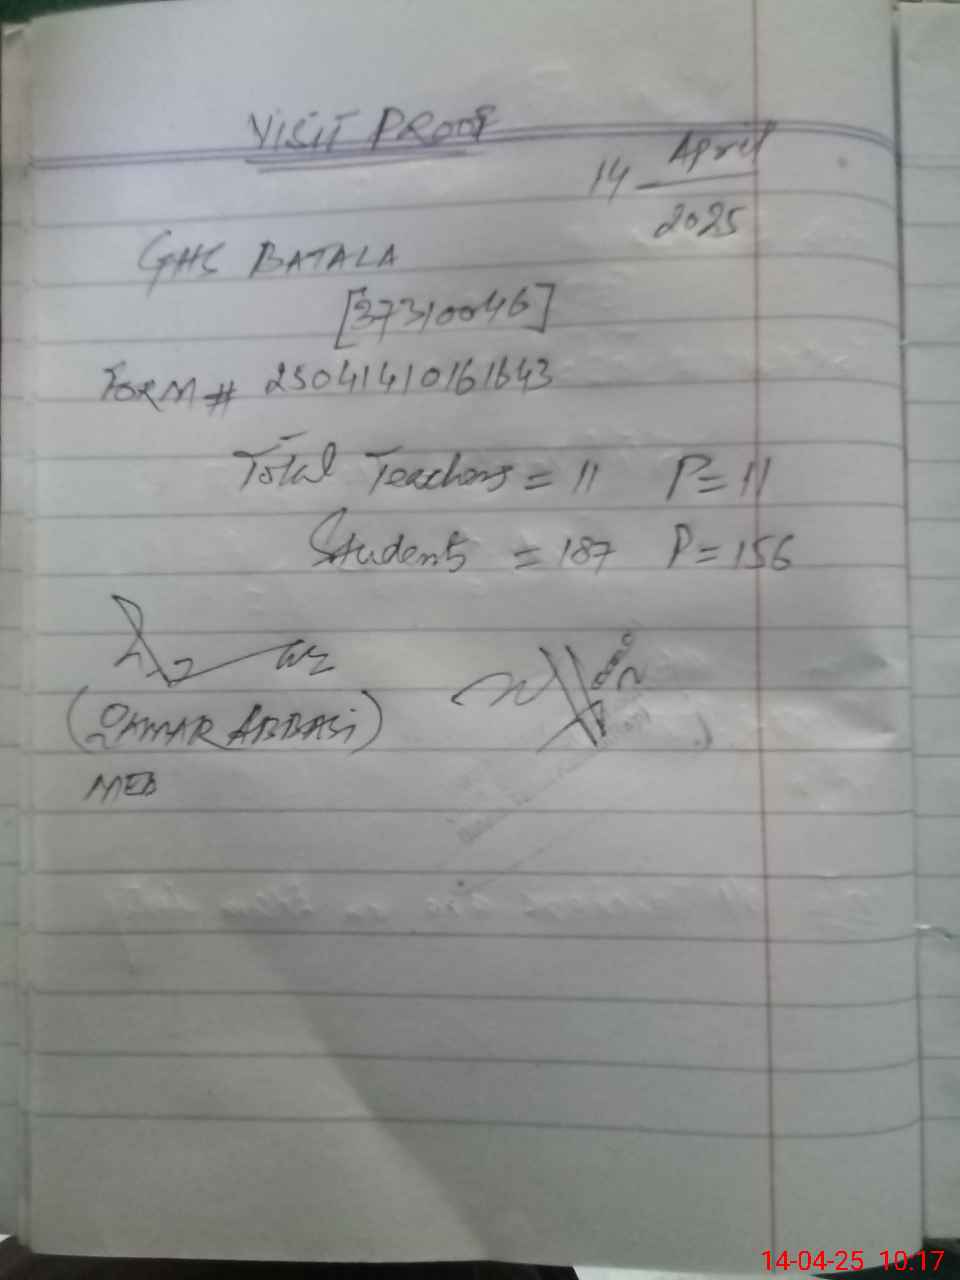 VISIT PROOF
14 April
2025
GHS BATALA
[37310046]
FORM # 25041410161643
Total Teachers = 11 P = 11
Students = 187 P = 156
(QAMAR ABBASI)
MEA
14-04-25 10:17